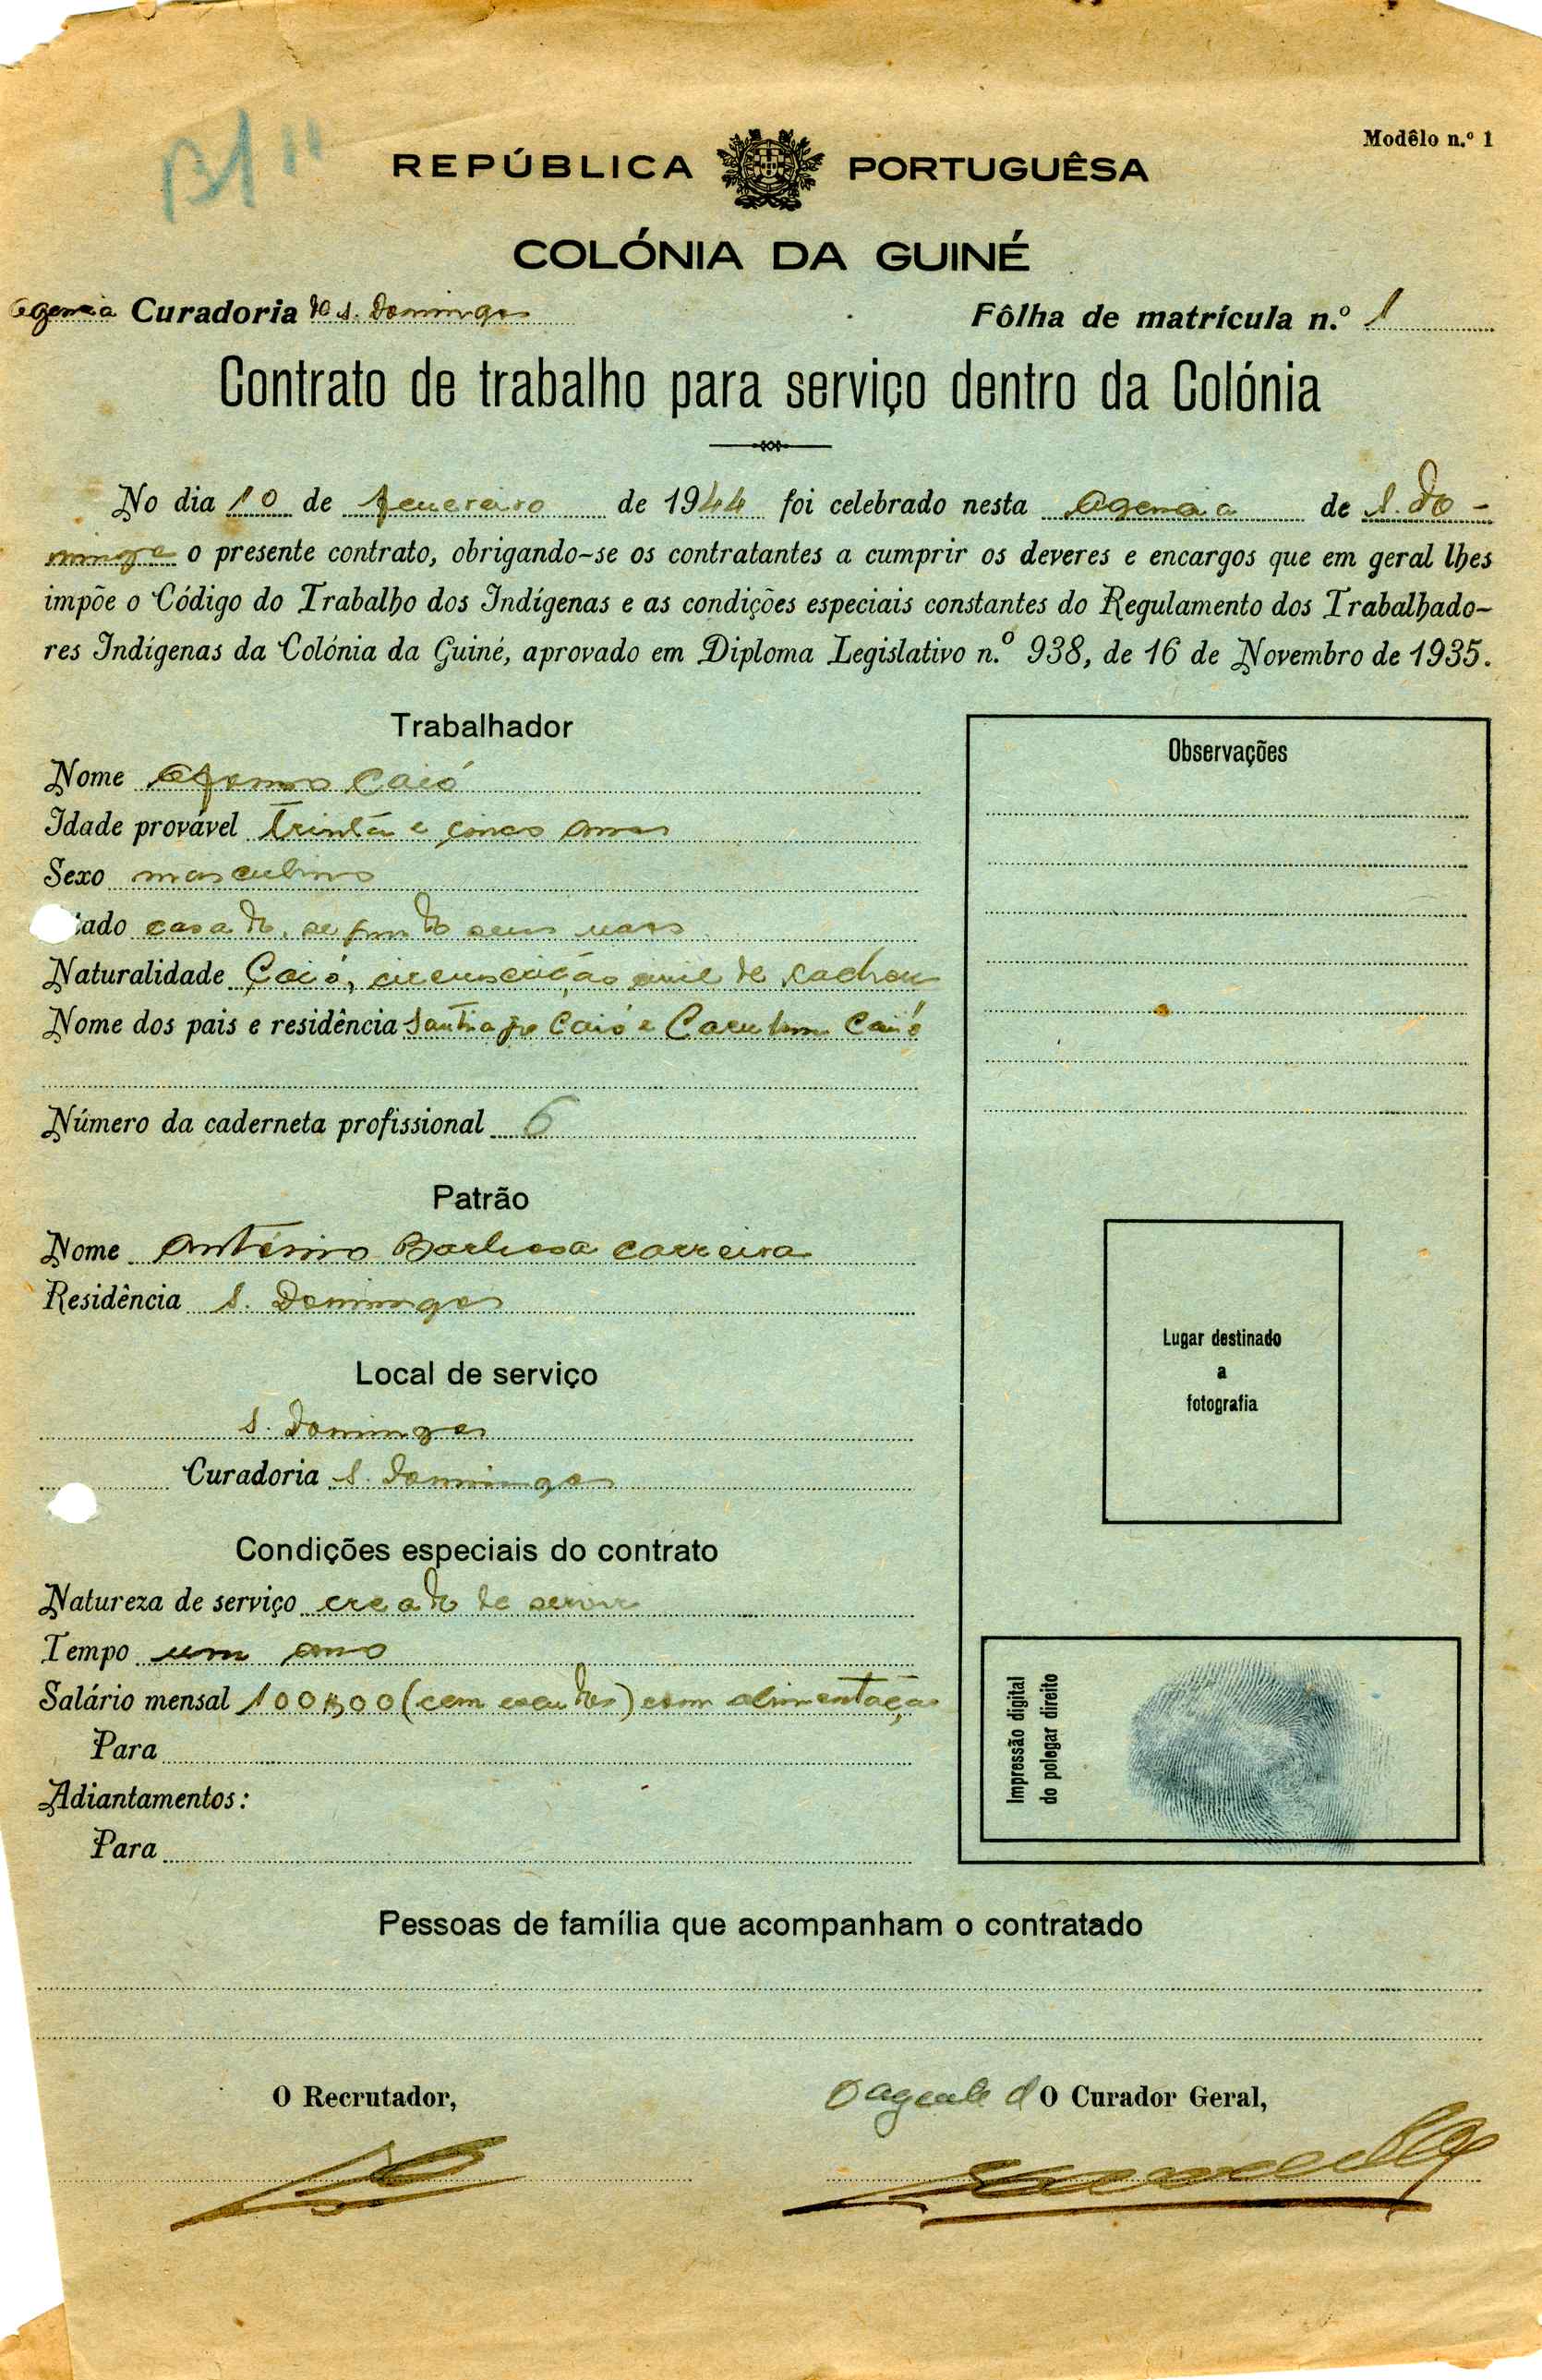 Modêlo n.º 1
REPÚBLICA PORTUGUÊSA
COLÓNIA DA GUINÉ
Agencia Curadoria de S. Domingos
Fôlha de matrícula n.º 1
Contrato de trabalho para serviço dentro da Colónia
No dia 10 de fevereiro de 1944 foi celebrado nesta Agencia de S. Do-
mingos o presente contrato, obrigando-se os contratantes a cumprir os deveres e encargos que em geral lhes
impõe o Código do Trabalho dos Indígenas e as condições especiais constantes do Regulamento dos Trabalhado-
res Indígenas da Colónia da Guiné, aprovado em Diploma Legislativo n.º 938, de 16 de Novembro de 1935.
Trabalhador
Nome Afonso Caió
Idade provável Trinta e cinco anos
Sexo masculino
tado casado, segundo seus usos
Naturalidade Caió, circunscrição civil de Cacheu
Nome dos pais e residência Santiago Caió e Caió
Número da caderneta profissional 6
Patrão
Nome António Barbosa Carreira
Residência S. Domingos
Local de serviço
S. Domingos
Curadoria S. Domingos
Condições especiais do contrato
Natureza de serviço creado de servir
Tempo um ano
Salário mensal 100$00 (cem escudos) com alimentação
Para
Adiantamentos:
Para
Observações
Lugar destinado
a
fotografia
Impressão digital
do polegar direito
Pessoas de família que acompanham o contratado
O Recrutador,
O agente d O Curador Geral,